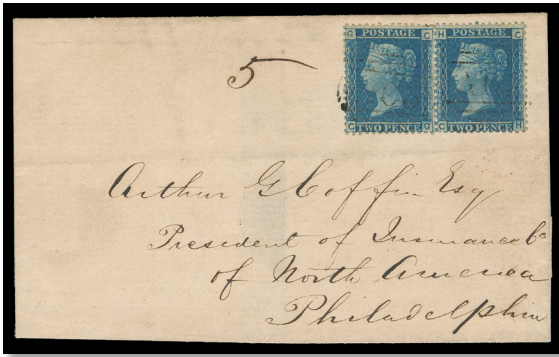 G POSTAGE C H POSTAGE C
5
C TWO PENCE G C TWO PENCE H
Arthur G Coffin Esq
President of Insurance Co
of North America
Philadelphia